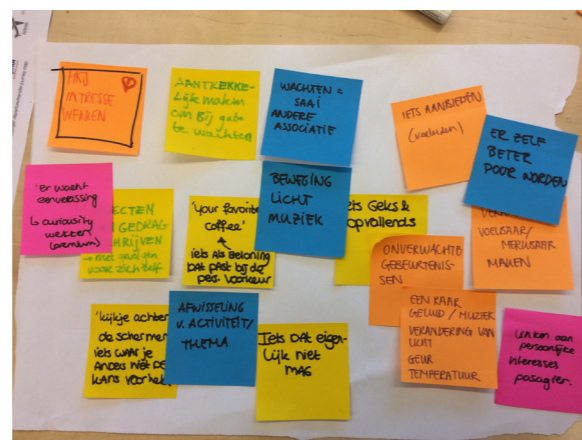 MIJ
INTRESSE
WEKKEN
AANTREKKE-
LIJK MAKEN
OM BIJ gate
te wachten
WACHTEN =
SAAI
ANDERE
ASSOCIATIE
IETS AANBIEDEN
ER ZELF
BETER
DOOR WORDEN
'Er wacht
een verrassing
↳ curiosity
wekken
(premium)
ECTEN
GEDRAG
HRIJVEN
→ met gevolgen
voor zichzelf
'your favorite
coffee'
iets als Beloning
DAT PAST bij de
pers. voorkeur
BEWEGING
LICHT
MUZIEK
Iets Geks &
opvallends
VOELBAAR/
MERKBAAR
MAKEN
ONVERWACHTE
GEBEURTENIS-
SEN
'kijkje achter
de schermen
iets WAAR je
ANDERS NIET DE
KANS voor hebt
AFWISSELING
v. ACTIVITEIT/
THEMA
Iets DAT eigen-
lijk niet
MAG
EEN RAAR
GELUID / MUZIEK
VERANDERING VAN
LICHT
GEUR
TEMPERATUUR
Linken aan
persoonlijke
interesses
pasagier.